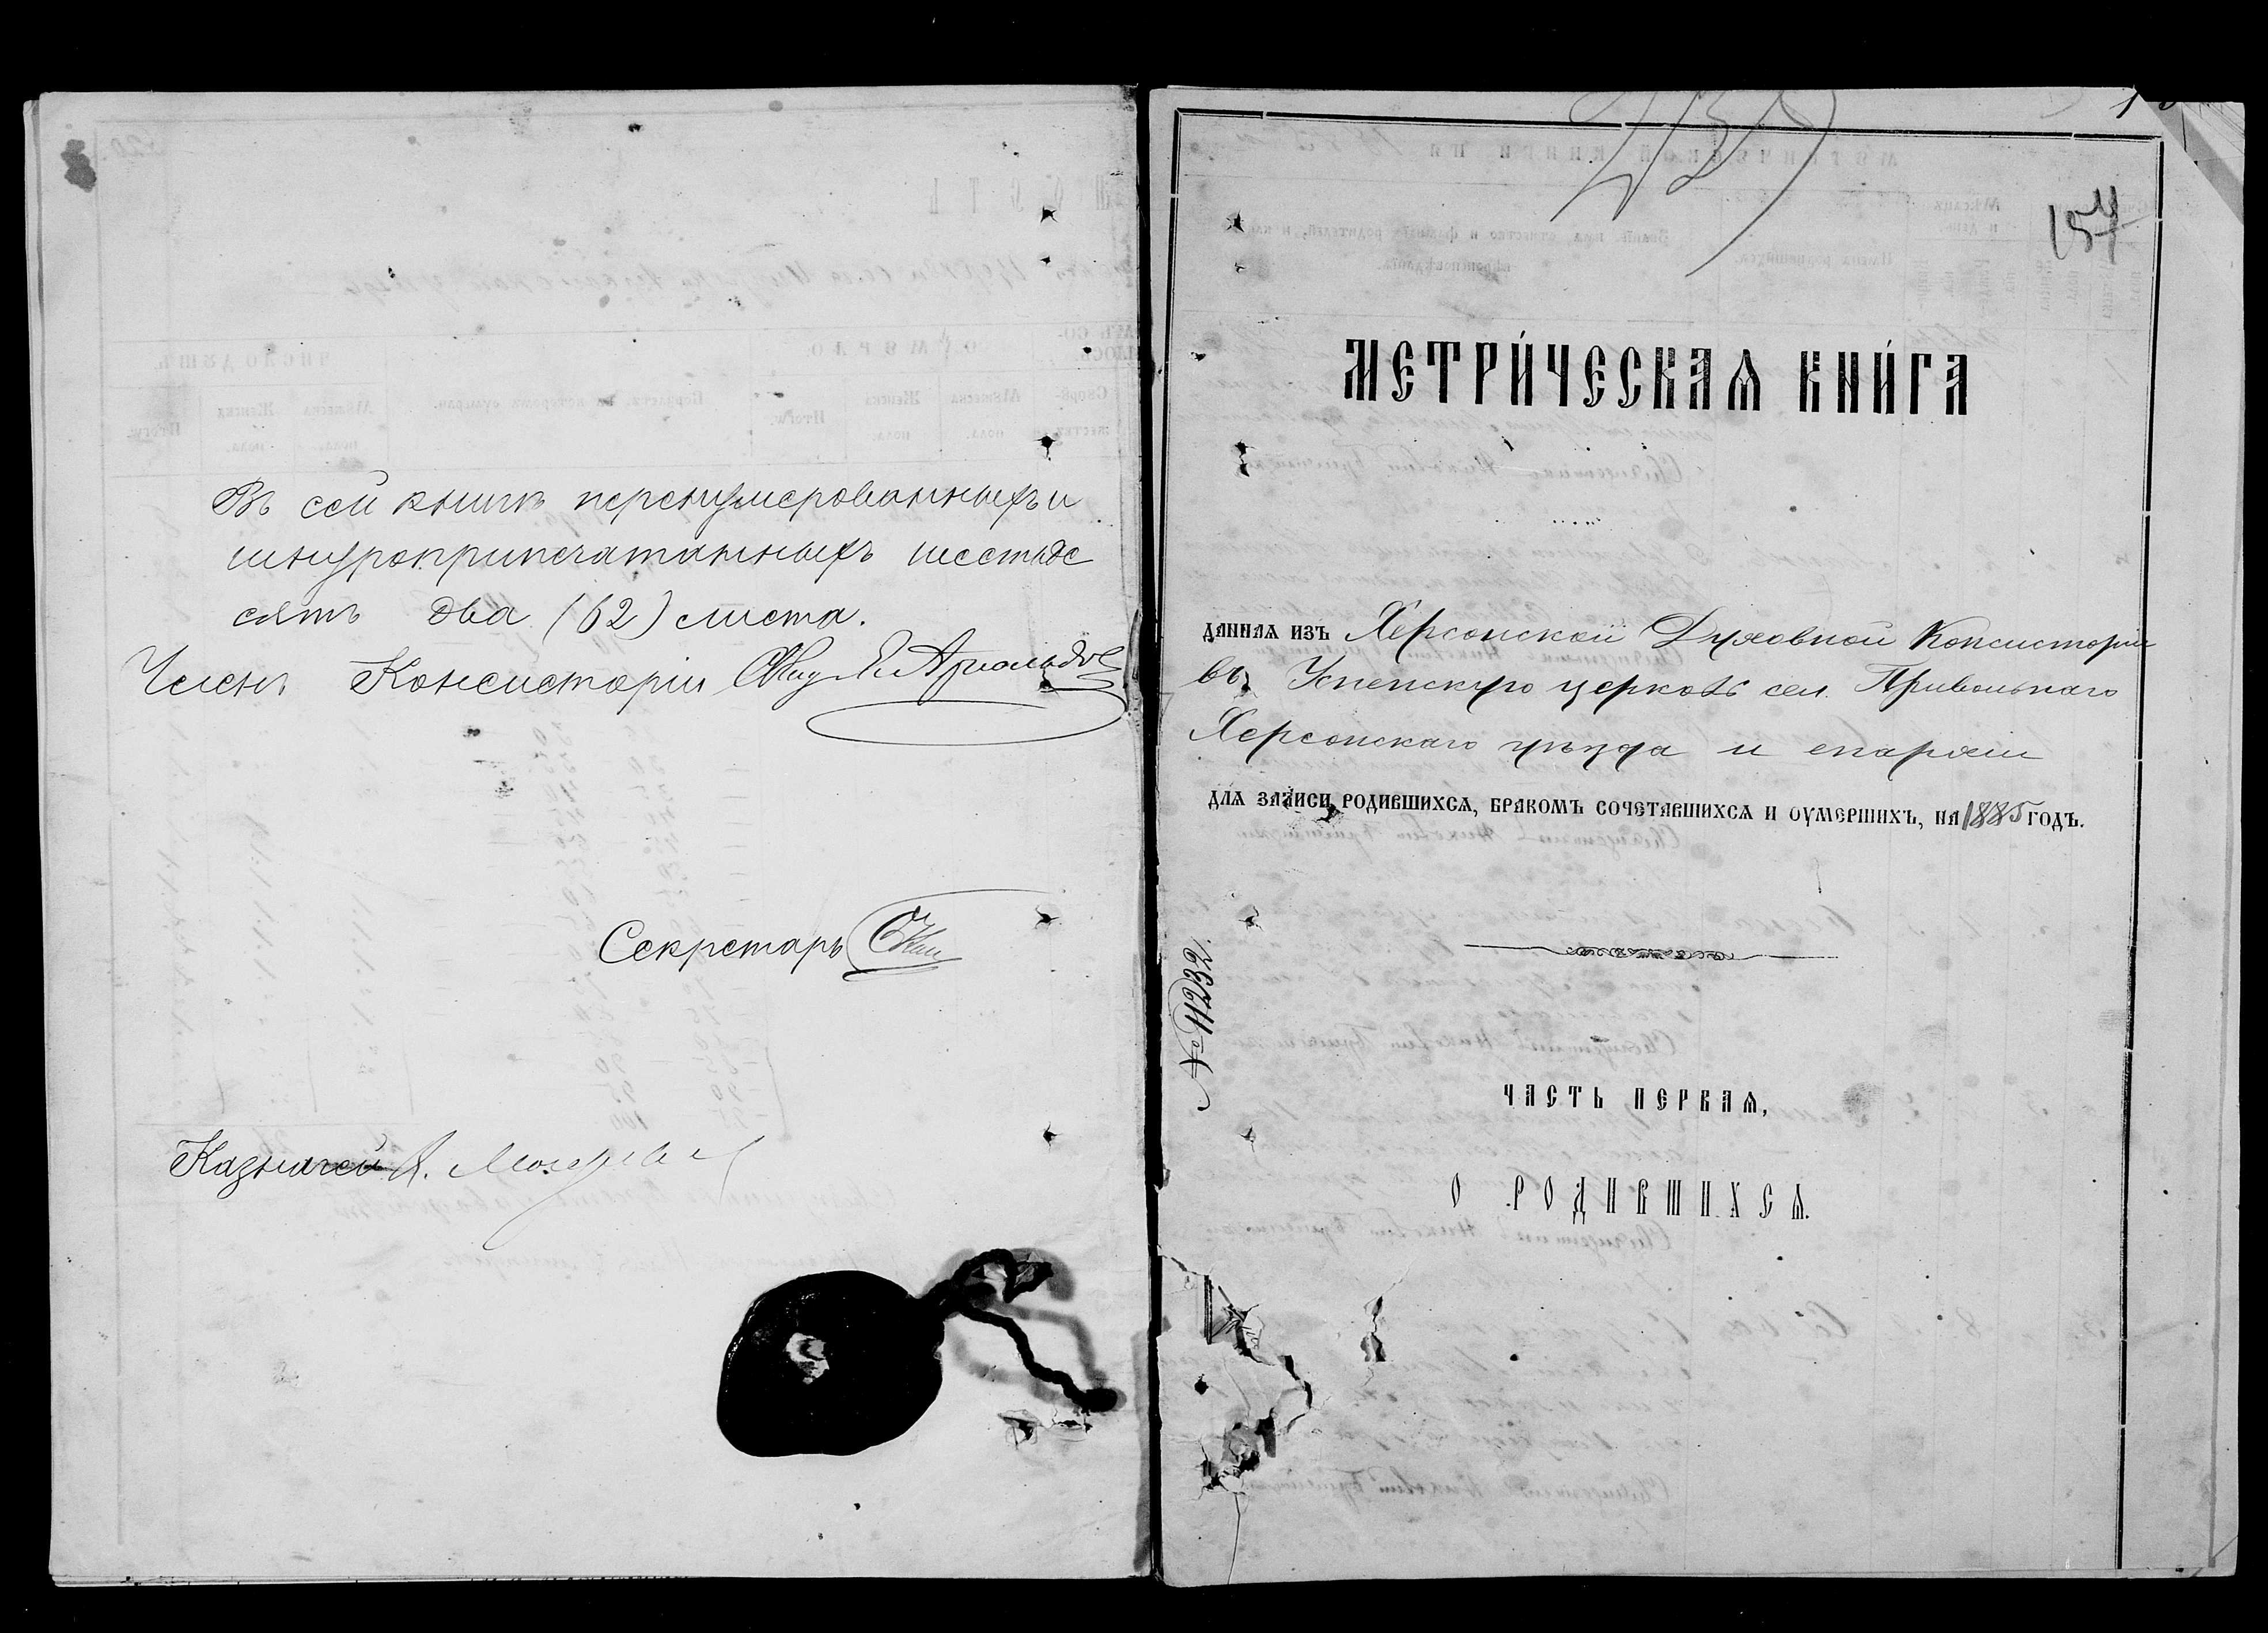 Въ сей книгѣ перенумерованныхъ и
шнуроприпечатанныхъ шестьде
сятъ два (62) листа.
Членъ Консисторіи Арнольдов
Секретарь
Казначей А.
1
157
МЕТРИ́ЧЕСКАѦ КНИ́ГА
ДАННАѦ ИЗЪ Херсонской Духовной Консисторіи
въ Успенскую церковь сел. Привольнаго
Херсонскаго уѣзда и епархіи
ДЛѦ ЗАПИСИ РОДИВШИХСѦ, БРАКОМЪ СОЧЕТАВШИХСѦ И ОУМЕРШИХЪ, НА 1885 ГОДЪ.
№ 11232.
ЧАСТЬ ПЕРВАѦ,
О РОДИВШИХСѦ.